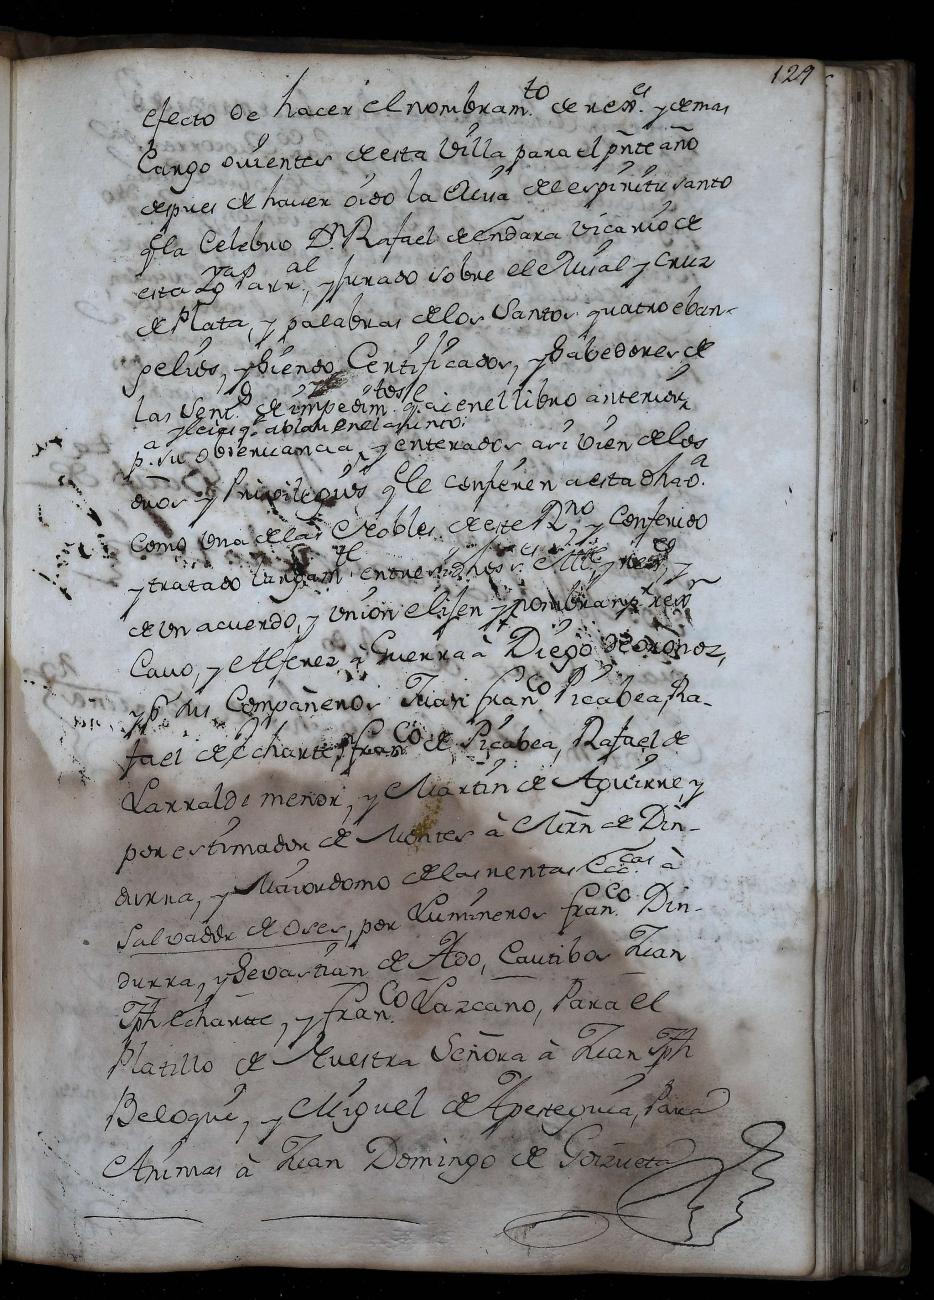 129
efecto de hacer el nombram.to de rexes. y demas
Cargo ouientes de esta Villa para el pñte año
despues de hauer oido la Misa del espiritu santo
q la Celebro Dn. Rafael de endara vicario de
esta Parr.al, y Jurado sobre el Misal y Cruz
de Plata, y palabras de los Santos quatro eban-
gelios, y Siendo Certificados, y Sabedores de
las Sent.s de impedim.tos q ai en el libro anterior
y leies q.e ablan en el asunto
p.a su obseruancia, y enterados asi vien de los
dros y Privilegios q le confieren a esta dha
como vna de las Nobles de este Rno, y Conferido
y tratado largam.te entre dhos
de vn acuerdo, y vnion elijen y nombran
Cauo, y Alferez à Guerra à Diego de ordoñez,
y pr. sus Compañeros Juan fran.co Picabea, Ra-
fael de Echarte, fran.co de Picabea, Rafael de
Larralde menor, y Martin de Aguirre y
por estimador de Montes à Min de Din-
durra, y Maiordomo de las rentas Ecc.cas à
Salvador de oses, por Lumineros fran.co Din-
durra, y Sevastian de Ado, Cautibos Juan
Jph Echarte, y fran.co Lazcano, Para el
Platillo de Nuestra Señora à Juan Jph
Beloqui, y Miguel de Apesteguia, Para
Animas à Juan Domingo de Goizueta